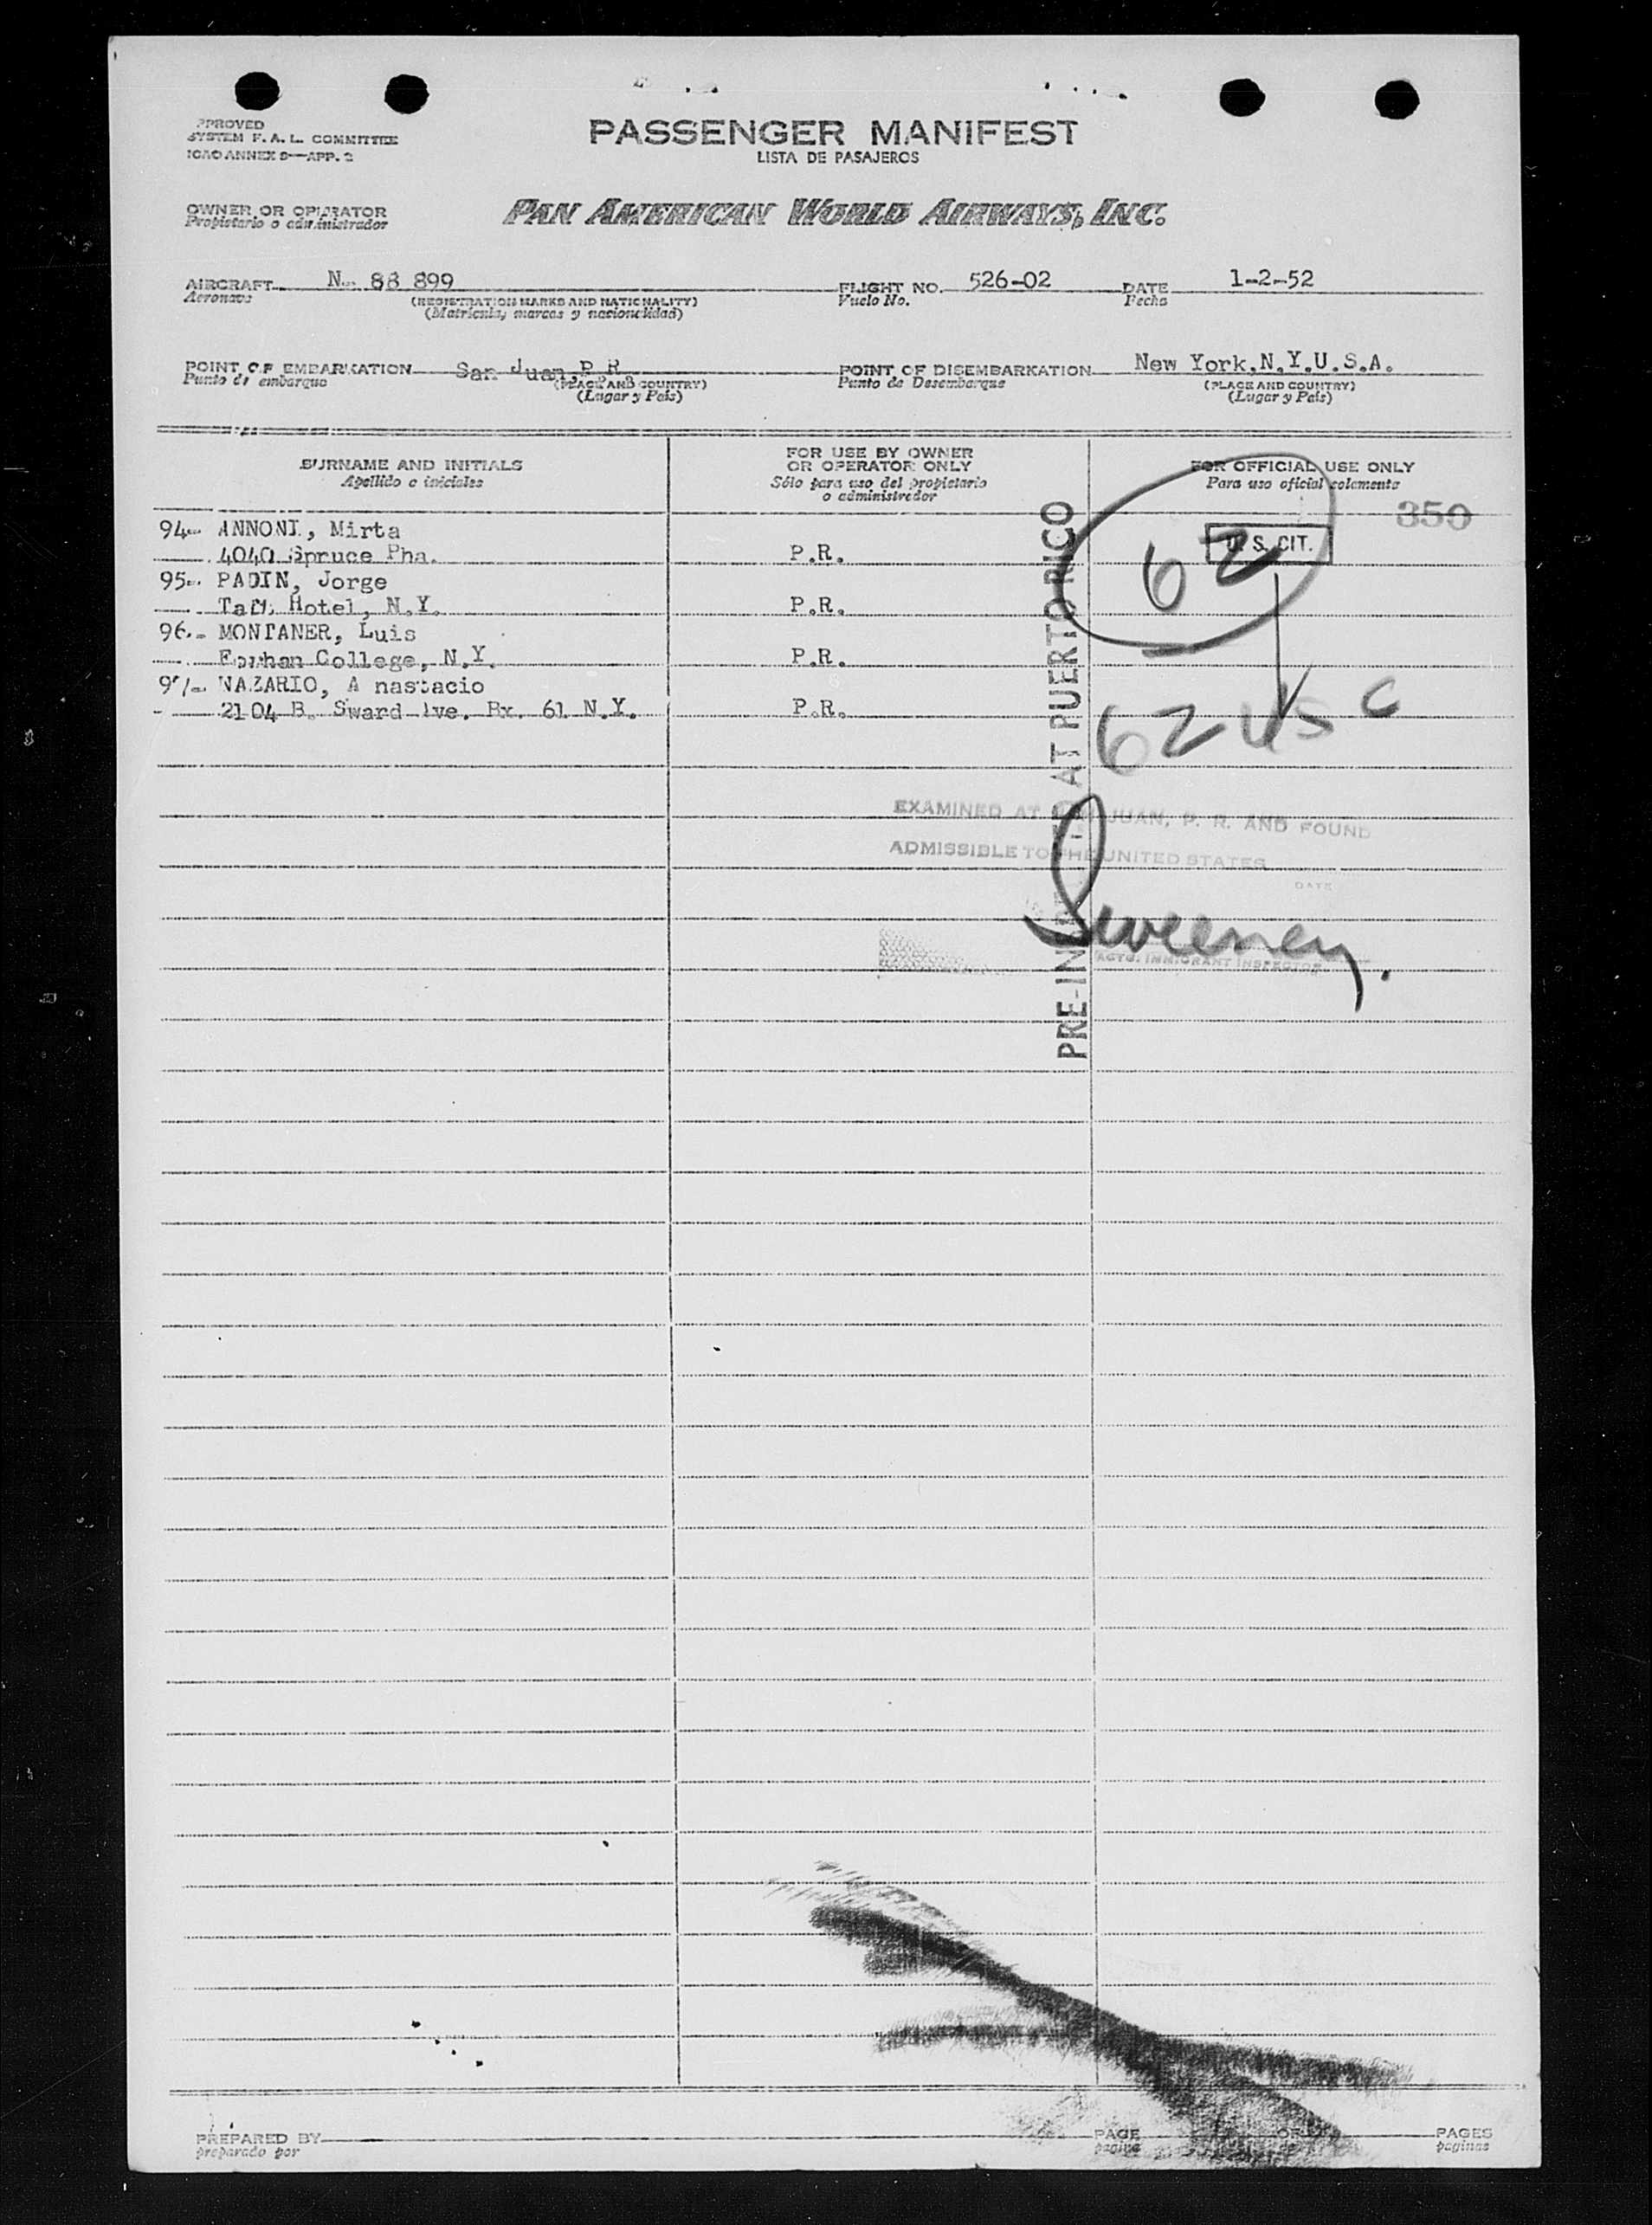 PPROVED
SYSTEM F. A. L. COMMITTEE
ICAO ANNEX 9—APP. 2
PASSENGER MANIFEST
LISTA DE PASAJEROS
OWNER OR OPERATOR
Propietario o administrador
PAN AMERICAN WORLD AIRWAYS, INC.
AIRCRAFT N. 88 899
Aeronave
(REGISTRATION MARKS AND NATIONALITY)
(Matrícula, marcas y nacionalidad)
FLIGHT NO. 526-02
Vuelo No.
DATE 1-2-52
Fecha
POINT OF EMBARKATION San Juan,P R
Punto de embarque
(PLACE AND COUNTRY)
(Lugar y País)
POINT OF DISEMBARKATION New York,N.Y.U.S.A.
Punto de Desembarque
(PLACE AND COUNTRY)
(Lugar y País)
SURNAME AND INITIALS
Apellido e iniciales
FOR USE BY OWNER
OR OPERATOR ONLY
Sólo para uso del propietario
o administrador
FOR OFFICIAL USE ONLY
Para uso oficial solamente
350
94- ANNONI, Mirta
4040 Spruce Pha. P.R.
U. S. CIT.
62
95- PADIN, Jorge
Hotel, N.Y. P.R.
96.- MONTANER, Luis
College, N.Y. P.R.
97- NAZARIO, A nastacio
2104 B. Sward Ave. Bx. 61 N.Y. P.R.
62 US C
PRE-IN AT PUERTO RICO
EXAMINED AT JUAN, P. R. AND FOUND
ADMISSIBLE TO THE UNITED STATES
DATE
Sweeney.
ACTG. IMMIGRANT INSPECTOR
PREPARED BY
preparado por
PAGE
pagina
OF
PAGES
paginas